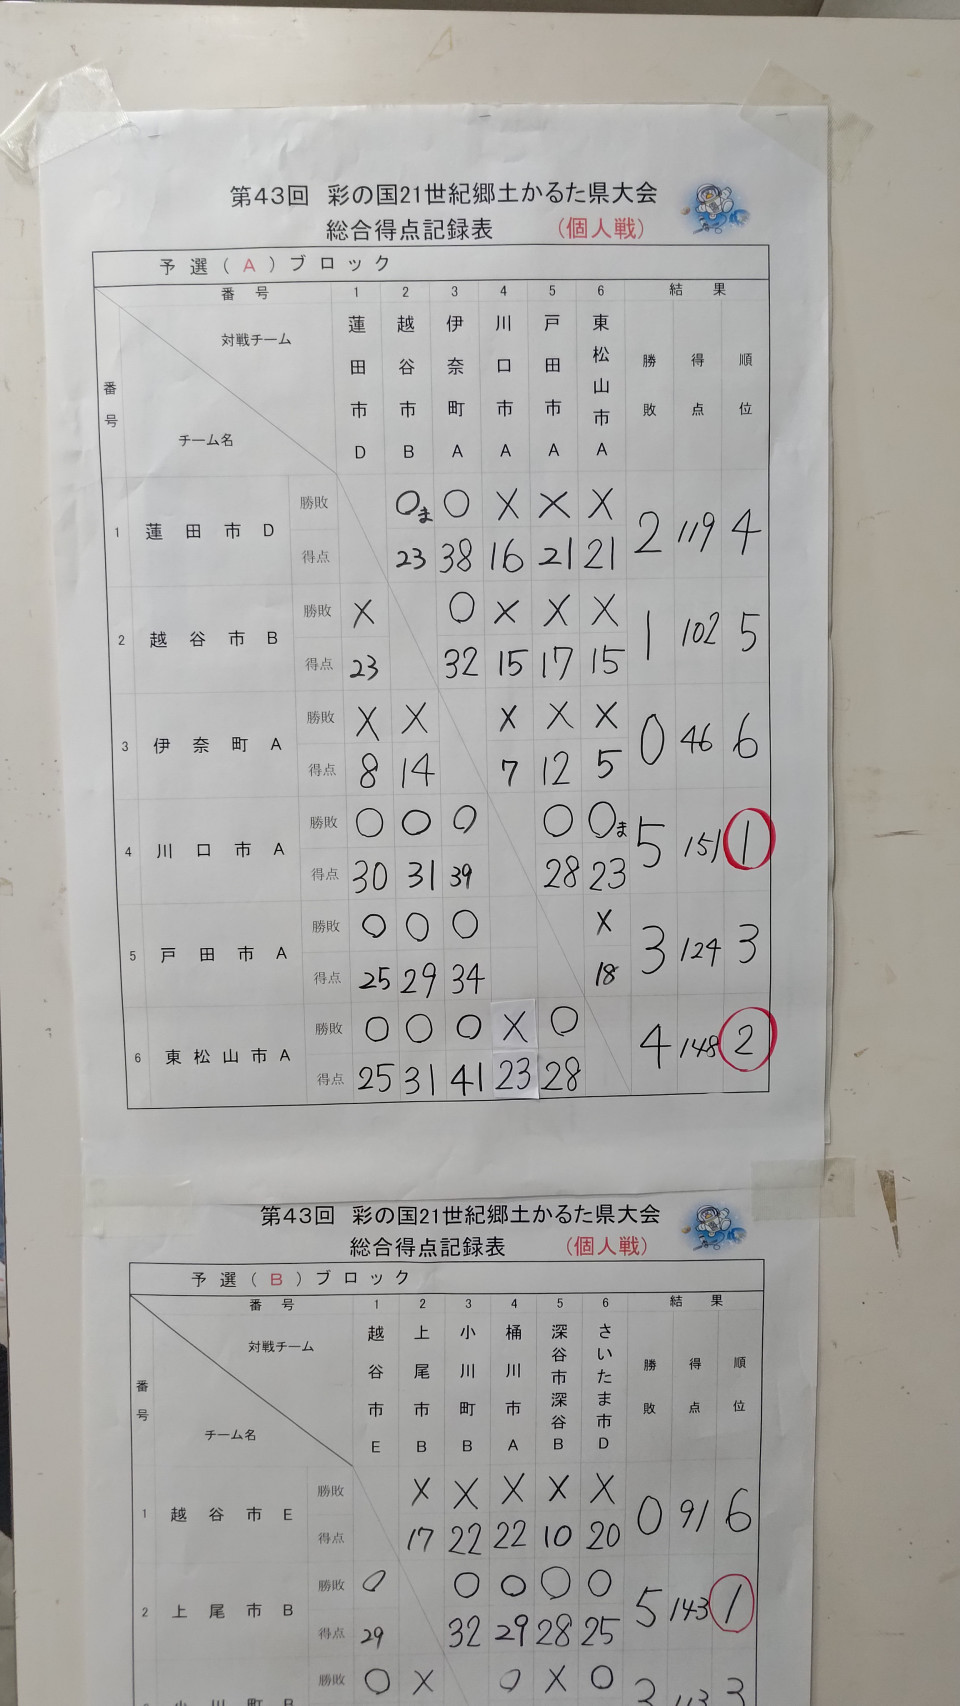 第43回 彩の国21世紀郷土かるた県大会
総合得点記録表 (個人戦)
予選(A)ブロック
番号 1 2 3 4 5 6 結果
番号 対戦チーム チーム名 蓮田市D 越谷市B 伊奈町A 川口市A 戸田市A 東松山市A 勝敗 得点 順位
1 蓮田市D 勝敗 ○ま ○ × × × 2 119 4
得点 23 38 16 21 21
2 越谷市B 勝敗 × ○ × × × 1 102 5
得点 23 32 15 17 15
3 伊奈町A 勝敗 × × × × × 0 46 6
得点 8 14 7 12 5
4 川口市A 勝敗 ○ ○ ○ ○ ○ま 5 151 1
得点 30 31 39 28 23
5 戸田市A 勝敗 ○ ○ ○ × 3 124 3
得点 25 29 34 18
6 東松山市A 勝敗 ○ ○ ○ × ○ 4 148 2
得点 25 31 41 23 28
第43回 彩の国21世紀郷土かるた県大会
総合得点記録表 (個人戦)
予選(B)ブロック
番号 1 2 3 4 5 6 結果
番号 対戦チーム チーム名 越谷市E 上尾市B 小川町B 桶川市A 深谷市深谷B さいたま市D 勝敗 得点 順位
1 越谷市E 勝敗 × × × × × 0 91 6
得点 17 22 22 10 20
2 上尾市B 勝敗 ○ ○ ○ ○ ○ 5 143 1
得点 29 32 29 28 25
小川町B 勝敗 ○ × ○ × ○ 3 113 3